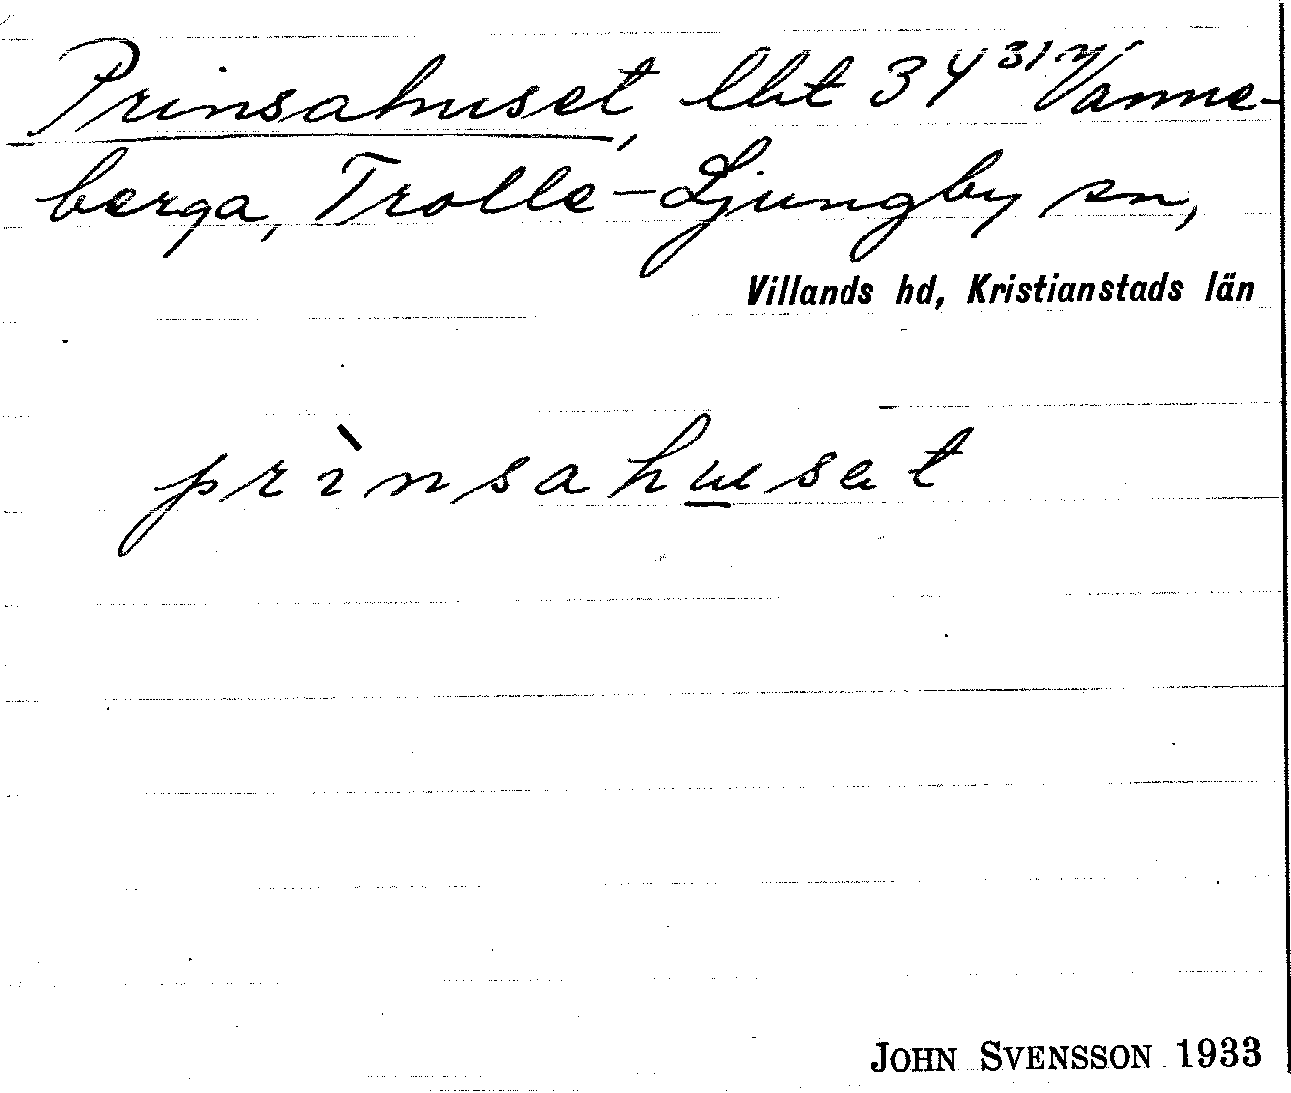 Prinsahuset, lht 34 31 Vanne-
berga, Trolle-Ljungby sn,
Villands hd, Kristianstads län
prìnsahuset
JOHN SVENSSON 1933